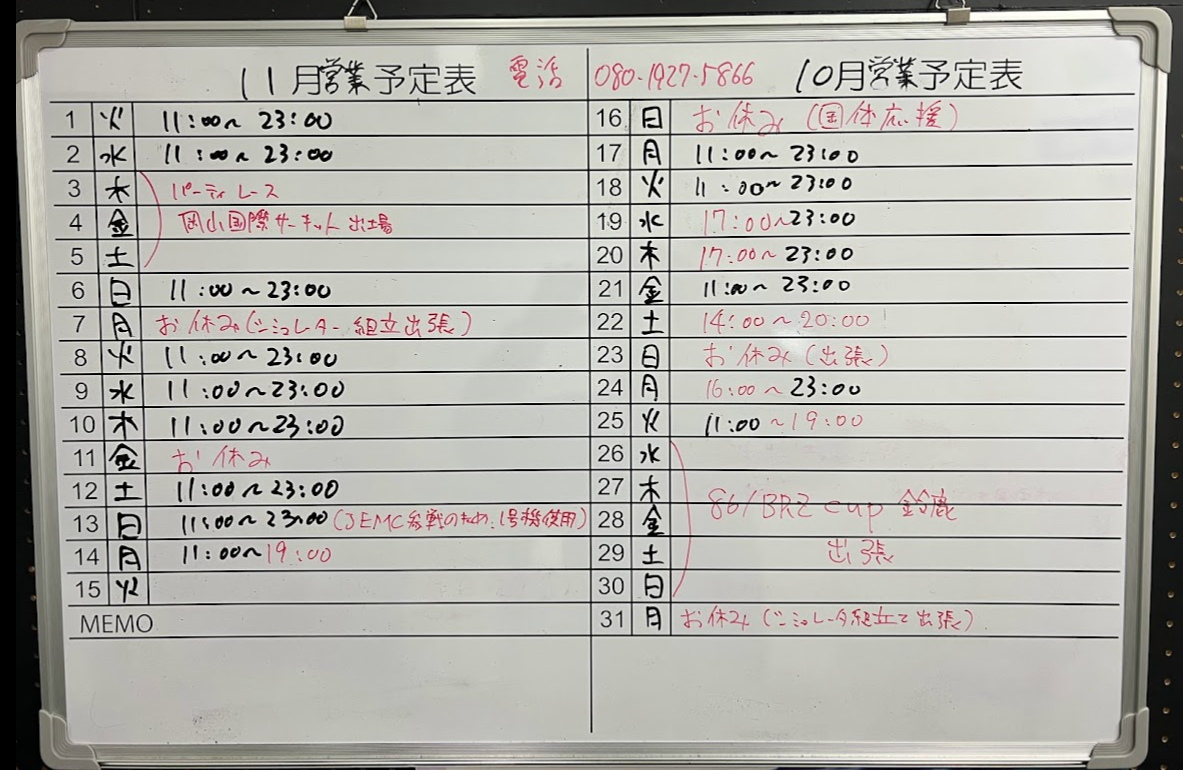 11月営業予定表 電話 080-1927-5866
1 火 11:00~23:00
2 水 11:00~23:00
3 木 パーティレース
4 金 岡山国際サーキット出場
5 土
6 日 11:00~23:00
7 月 お休み(シミュレーター組立出張)
8 火 11:00~23:00
9 水 11:00~23:00
10 木 11:00~23:00
11 金 お休み
12 土 11:00~23:00
13 日 11:00~23:00(JEMC参戦のため、1号機使用)
14 月 11:00~19:00
15 火
MEMO
10月営業予定表
16 日 お休み(国体応援)
17 月 11:00~23:00
18 火 11:00~23:00
19 水 17:00~23:00
20 木 17:00~23:00
21 金 11:00~23:00
22 土 14:00~20:00
23 日 お休み(出張)
24 月 16:00~23:00
25 火 11:00~19:00
26 水
27 木 86/BRZ cup 鈴鹿
28 金
29 土 出張
30 日
31 月 お休み(シミュレータ組立て出張)